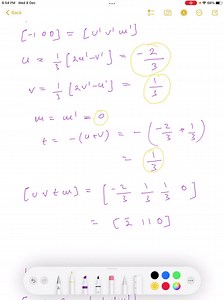 8:58 PM Wed 8 Dec
[-1 0 0] = [u' v' w']
u = 1/3 [2u'-v'] = -2/3
v = 1/3 [2v'-u'] = 1/3
w = w' = 0
t = -(u+v) = -(-2/3 + 1/3)
= 1/3
[u v t w] = [-2/3 1/3 1/3 0]
= [2̄ 1 1 0]